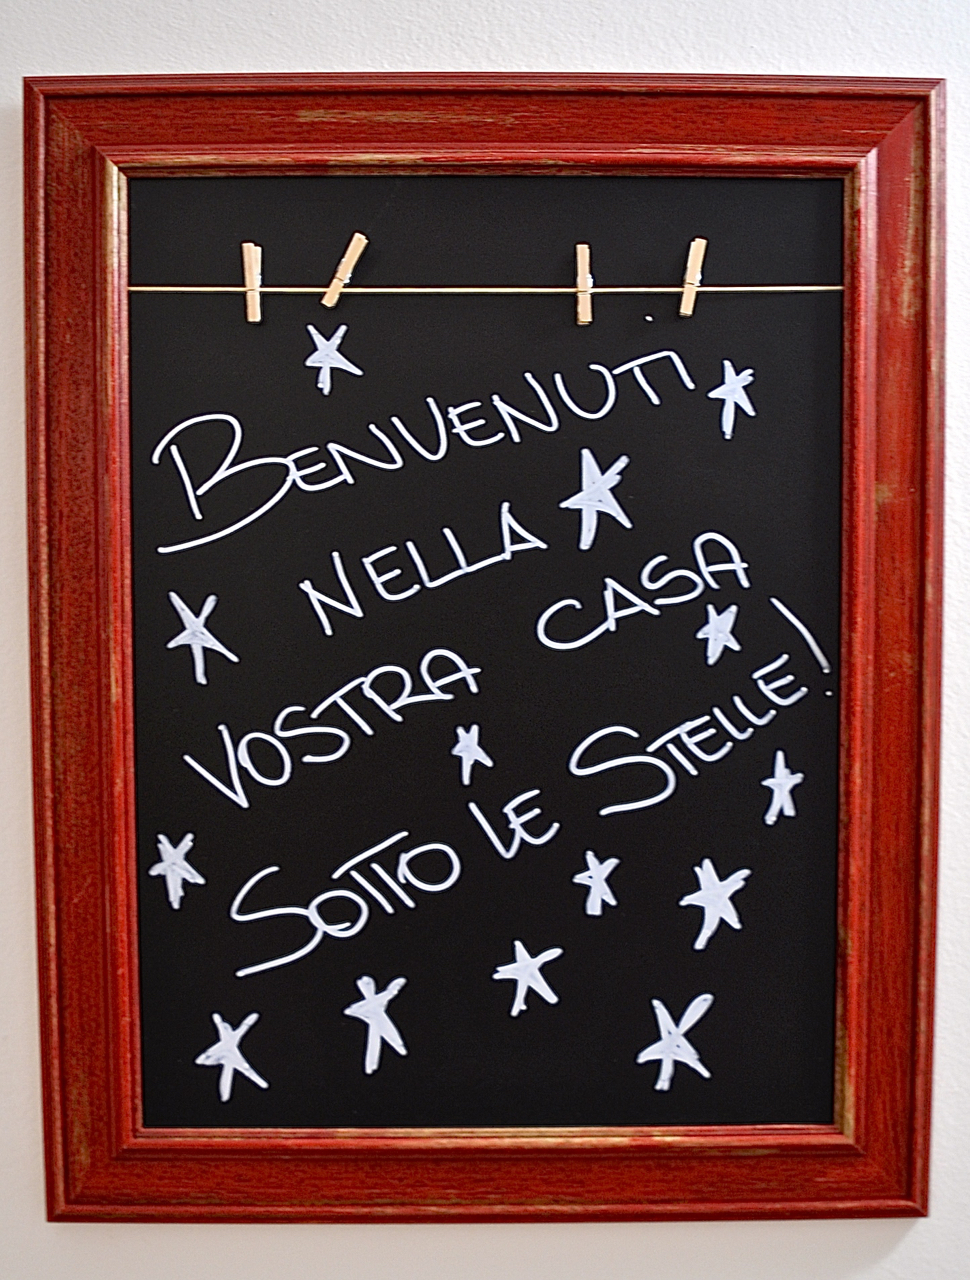 BENVENUTI
NELLA
VOSTRA CASA
SOTTO LE STELLE!